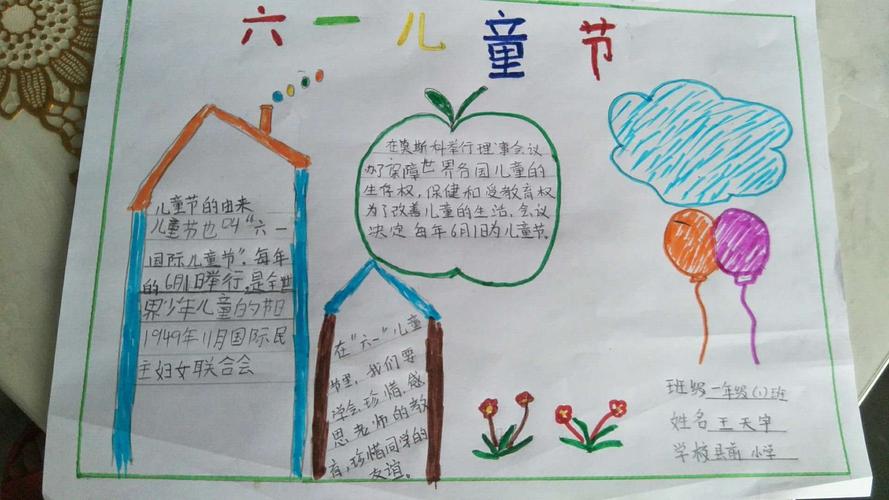 六一儿童节
儿童节的由来
儿童节也叫“六一
国际儿童节”。每年
的6月1日举行,是全世
界少年儿童的节日
1949年11月国际民
主妇女联合会
在莫斯科举行理事会议
为了保障世界各国儿童的
生存权,保健和受教育权
为了改善儿童的生活,会议
决定每年6月1日为儿童节。
在“六一”儿童
节里,我们要
学会珍惜,感
恩老师的教
育,珍惜同学的
友谊。
班级一年级(1)班
姓名王天宇
学校县前小学